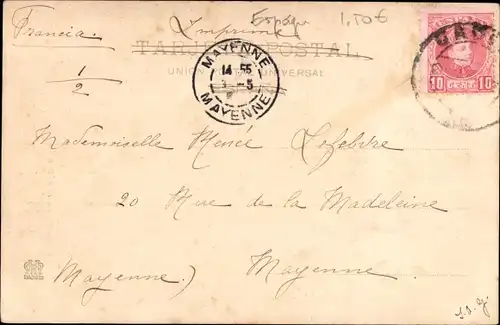 Francia.
Imprimé
Espagn 1,50 €
TARJETA POSTAL
UNION POSTAL UNIVERSAL
1/2
MAYENNE
14 55
-5
MAYENNE
10 CENT. 10
Mademoiselle Renée Lefebvre
20 Rue de la Madeleine
Mayenne) Mayenne